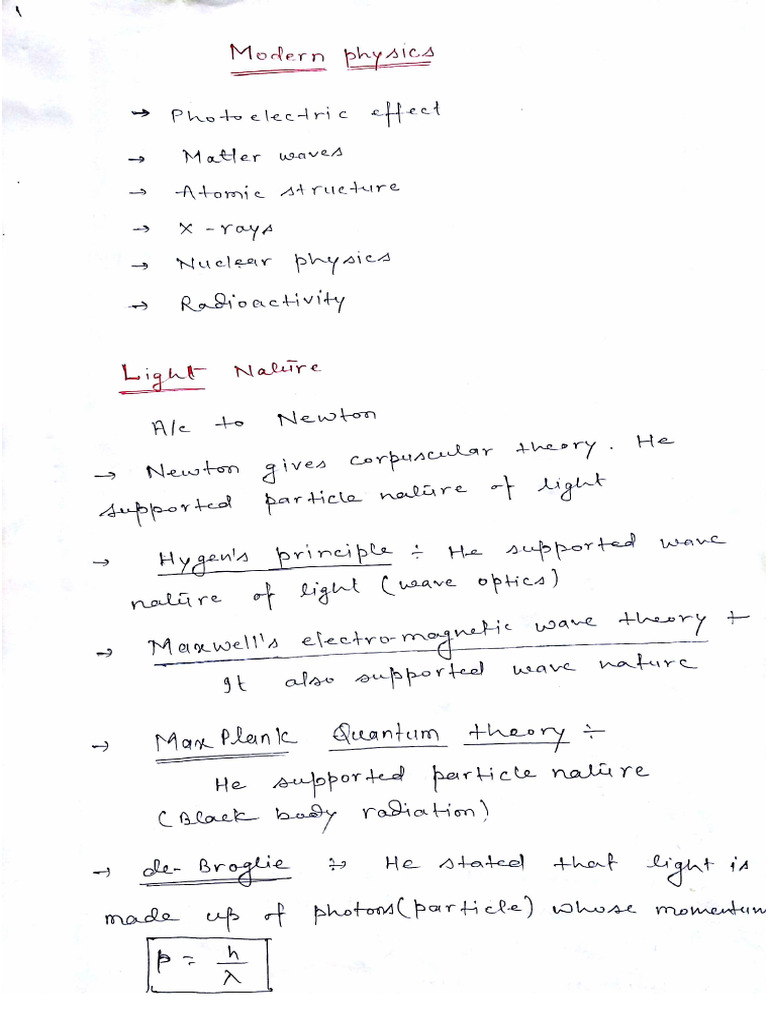 1
Modern physics
→ Photoelectric effect
→ Matter waves
→ Atomic structure
→ X-rays
→ Nuclear physics
→ Radioactivity
Light Nature
A/c to Newton
→ Newton gives corpuscular theory. He
supported particle nature of light
→ Hygen's principle ÷ He supported wave
nature of light (wave optics)
→ Maxwell's electro-magnetic wave theory ÷
It also supported wave nature
→ Max Plank Quantum theory ÷
He supported particle nature
(Black body radiation)
→ de-Broglie ÷ He stated that light is
made up of photons (particle) whose momentum
p = h/λ